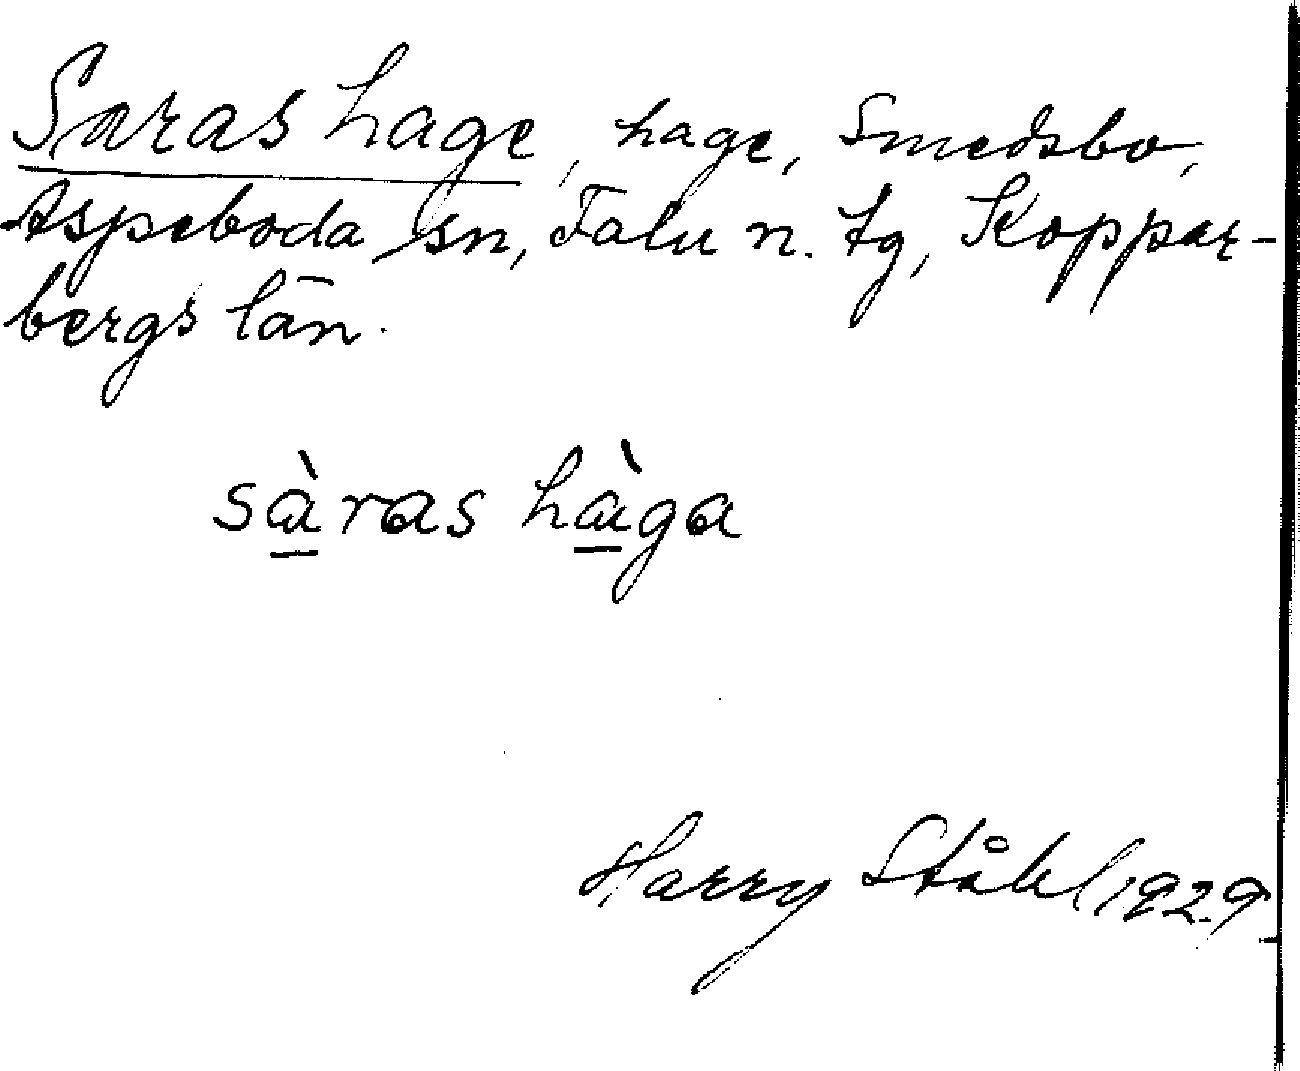 Saras hage, hage, Smedsbo,
Aspeboda sn, Falu n. tg, Koppar-
bergs län.
sà̱ras hà̱ga
Harry Ståhl 1929